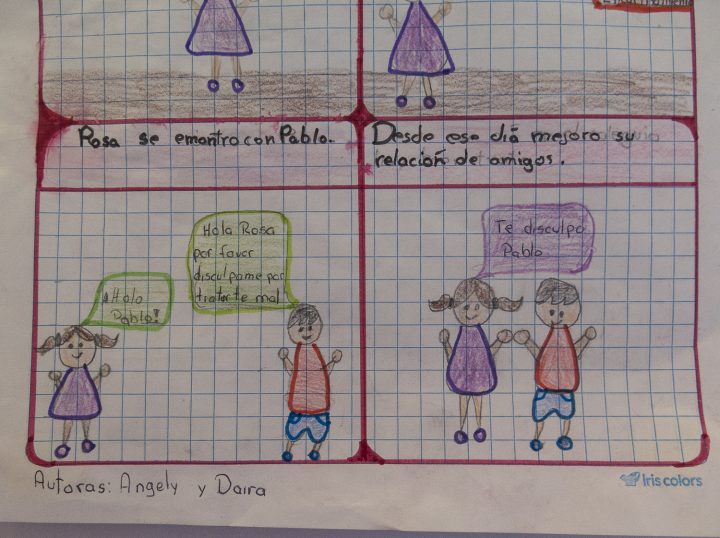 Rosa se emontro con Pablo.
Desde ese día mejoro su
relación de amigos.
Hola Rosa
por favor
disculpame por
tratarte mal
¡Hola
Pablo!
Te disculpo
Pablo
Autoras: Angely y Daira
Iris colors